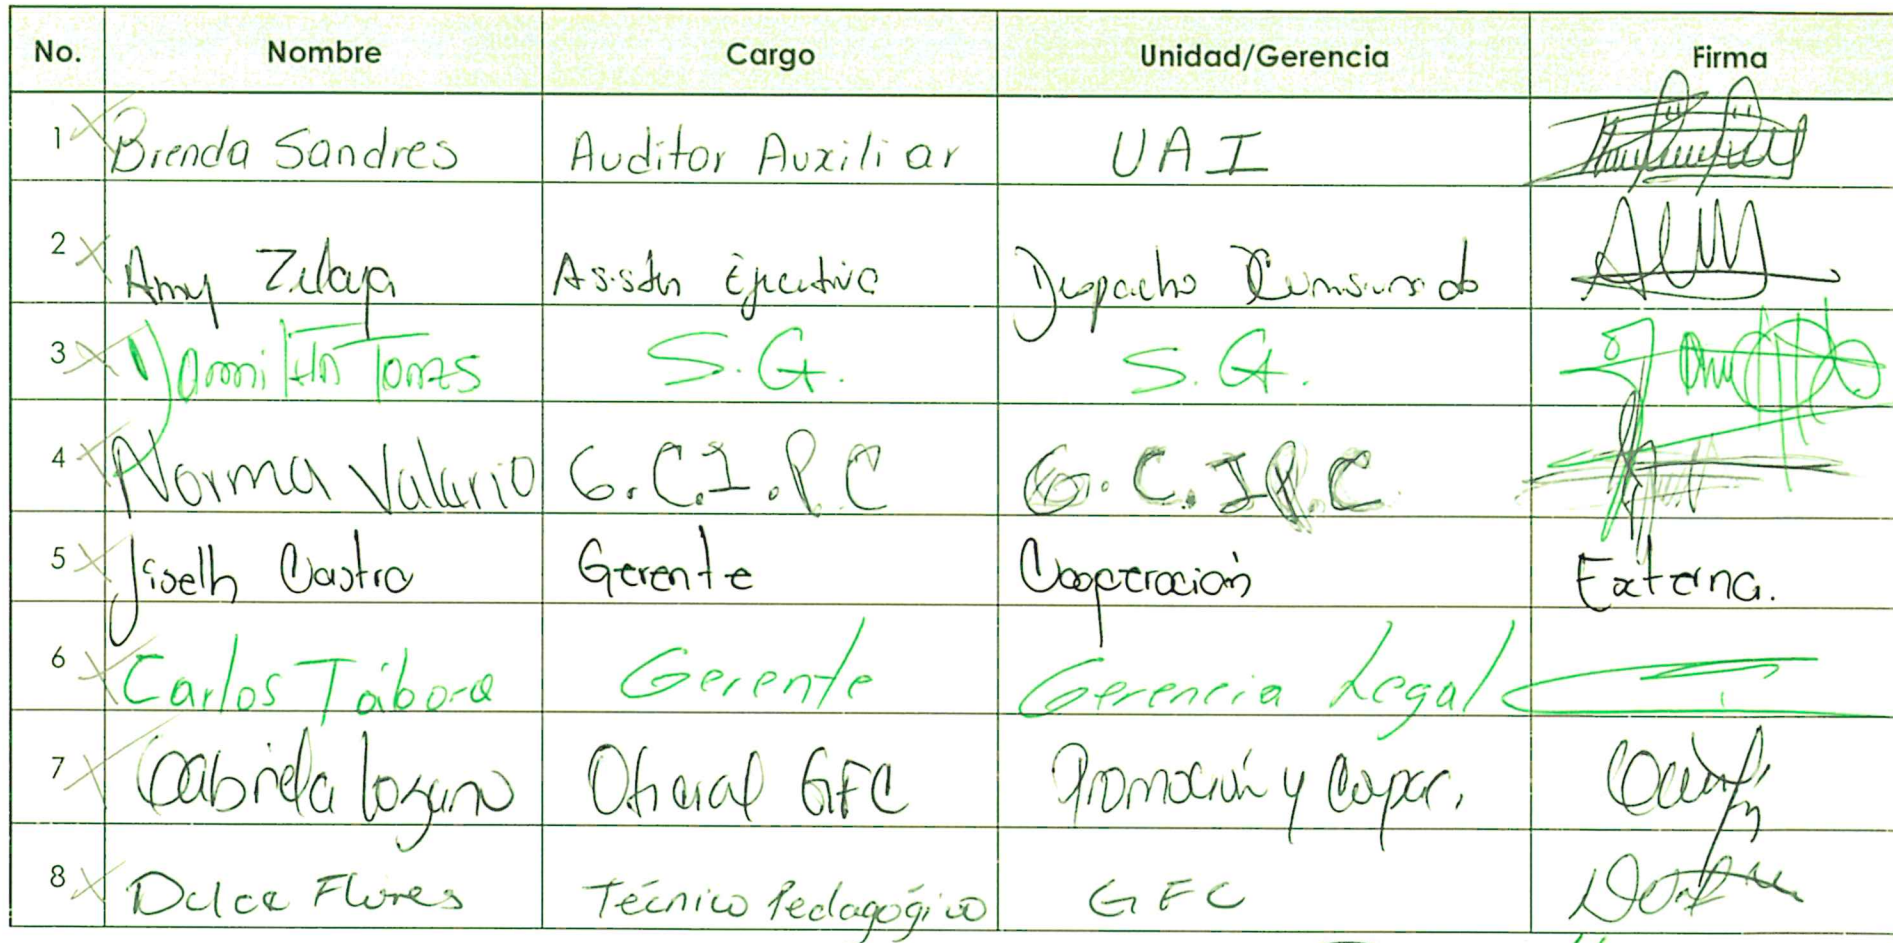 No. Nombre Cargo Unidad/Gerencia Firma
1 Brenda Sandres Auditor Auxiliar UAI
2 Amy Zelaya Asisten Ejecutiva Despacho
3 Torres S.G. S.G.
4 Norma Valerio G.C.I.P.C G.C.I.P.C
5 Jiselh Castro Gerente Cooperación Externa.
6 Carlos Tábora Gerente Gerencia Legal
7 Gabriela Lozano Oficial GFC Promoción y Capac.
8 Dulce Flores Técnico Pedagógico GFC